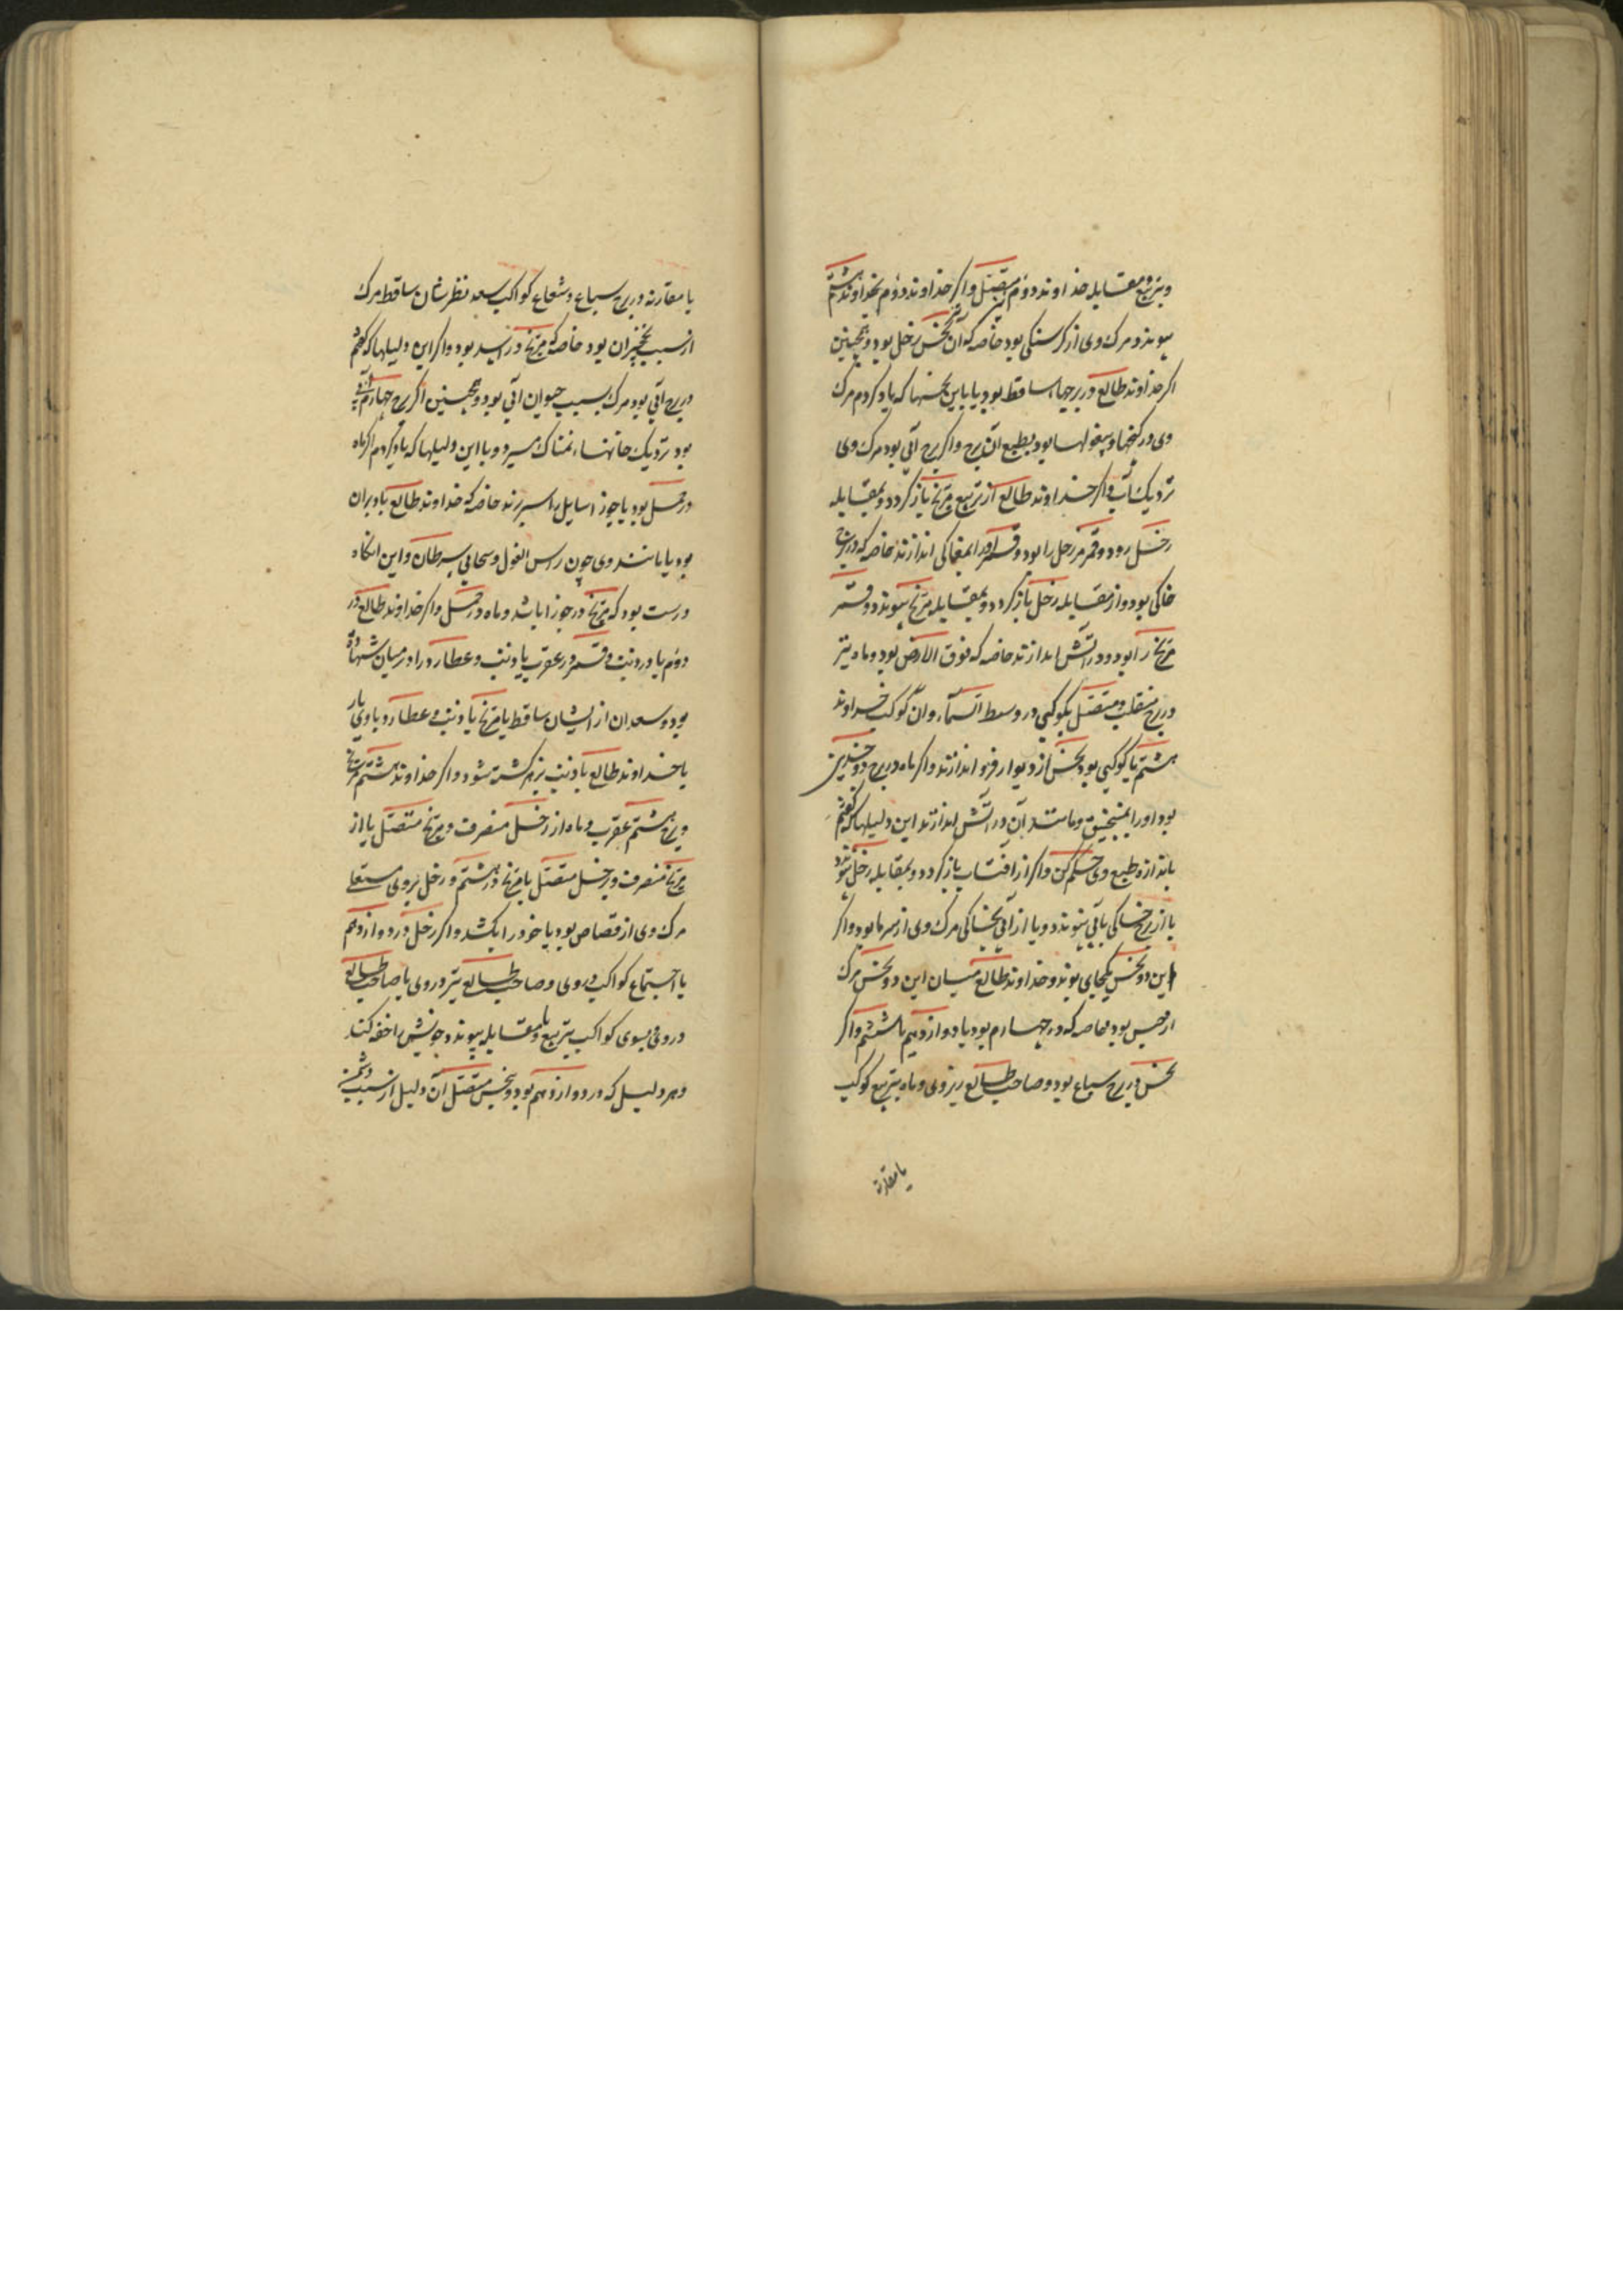 وبتربیع و مقابله خداوند دوم متصل واکر خداوند دوم بخداوند هشتم
پیوندد مرک وی از کرسنکی بود خاصه که آن نحس زحل بود و همچنین
اکر خداوند طالع در برج ساقط بود یا باین نحسها که یاد کردم مرک
وی در کنجها و بیغولها بود بطبع آن برج واکر برج آبی بود مرک وی
نزدیک آب واکر خداوند طالع از تربیع مریخ باز کردد و بمقابله
زحل رود و قمر مر زحل را بود و قمر اورا بمغاکی اندازند خاصه که در برج
خاکی بود واز مقابله زحل باز کردد و بمقابله مریخ پیوندد و قمر
مریخ را بود و در آتش اندازند خاصه که فوق الارض بود و ماه نیز
در برج منقلب و متصل بکوکبی در وسط السماء وان کوکب خداوند
هشتم یا کوکبی بود نحس از دیوار فرو اندازند واکر ماه در برج ذو جسدین
بود اورا بمنجنیق و مانند آن در آتش اندازند این دلیلها که کفتم
باندازه طبع وی حکم کن واکر از آفتاب باز کردد و بمقابله زحل شود
یا از برج خاکی بآبی پیوندد و یا از آبی بخاکی مرک وی از سرما بود واکر
این دو نحس یکجای بوند و خداوند طالع میان این دو نحس مرک
از حبس بود خاصه که در چهارم بود یا دوازدهم یا ششم واکر
نحس در برج سباع بود و صاحب طالع زیر وی و ماه بتربیع کوکب
یا مقارنه
یا مقارنه در برج سباع و شعاع کواکب سعد نظرشان ساقط مرک
از سبب نخجیران بود خاصه که مریخ در اسد بود واکر این دلیلها که کفتم
در برج آبی بود مرک بسبب حیوان آبی بود و همچنین اکر برج چهارم آبی
بود نزدیک خانهاء نمناک میرد و با این دلیلها که یاد کردم اکر ماه
در حمل بود یا جوزا سایل را سر برند خاصه که خداوند طالع با دبران
بود یا مانند وی چون راس الغول و سحابی سرطان و این آنکاه
درست بود که مریخ در جوزا باشد و ماه در حمل واکر خداوند طالع در
دوم یا در ذنب و قمر در عقرب یا ذنب و عطارد را در میان شهادة
بود و سعدان از ایشان ساقط یا مریخ با ذنب و عطارد با وی یار
یا خداوند طالع با ذنب بزهر کشته شود واکر خداوند هشتم مریخ
و برج هشتم عقرب و ماه از زحل منصرف و بمریخ متصل یا از
مریخ منصرف و بزحل متصل یا مریخ در هشتم و زحل بر وی مستعلی
مرک وی از قصاص بود یا خود را بکشد واکر زحل در دوازدهم
یا اجتماع کواکب در وی و صاحب طالع نیز در وی یا صاحب طالع
در وی بسوی کواکب بتربیع یا مقابله پیوندد خویش را خفه کند
و هر دلیل که در دوازدهم بود و بنحس متصل آن دلیل از سبب دشمن